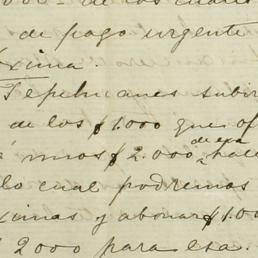 de pago urgente
xima
Tepehuanes subir
de los $1.000 que of
mos $2.000 de esa
lo cual podremos
ximas y abonar $1.00
$2000 para esa.